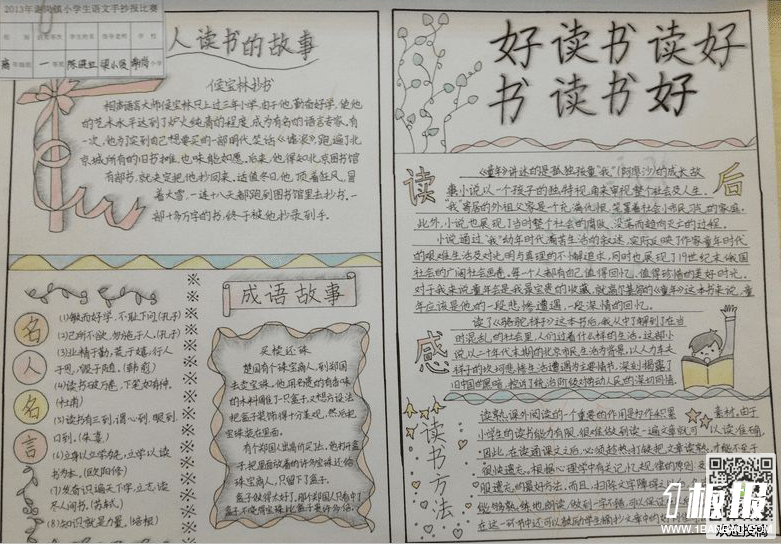 2013年
镇小学生语文手抄报比赛
人读书的故事
侯宝林抄书
相声语言大师侯宝林只上过三年小学,由于他勤奋好学,使他
的艺术水平达到了炉火纯青的程度,成为有名的语言专家。有
一次,他为了买到自己想要买的一部明代笑话《谑浪》,跑遍了北
京城所有的旧书摊也未能如愿。后来,他得知北京图书馆
有部书,就决定把他抄回来。适值冬日,他顶着狂风,冒
着大雪,一连十八天都跑到图书馆里去抄书。一
部十多万字的书,终于被他抄录到手。
名人名言
(1)敏而好学,不耻下问(孔子)
(2)己所不欲,勿施于人。(孔子)
(3)业精于勤,荒于嬉;行成
于思,毁于随。(韩愈)
(4)读书破万卷,下笔如有神。
(杜甫)
(5)读书有三到,谓心到、眼到、
口到。(朱熹)
(6)立身以立学为先,立学以读
书为本。(欧阳修)
(7)发奋识遍天下字,立志读
尽人间书。(苏轼)
(8)知识就是力量。(培根)
成语故事
买椟还珠
楚国有个珠宝商人,到郑国
去卖宝珠。他用名贵的有香味
的木料雕了一只盒子,又想方设法
把盒子装饰得十分美观,然后把
宝珠装在里面。
有个郑国人出高价买珠。他打开盒
子,把里面放着的珠宝还给
珠宝商人,只留下了盒子。
盒子做得太好了,
好读书读好
书读书好
读后感
《童年》讲述的是孤独孩童“我”(阿廖沙)的成长故
事。小说以一个孩子的独特视角来审视整个社会及人生。
“我”寄居的外祖父家是一个充满仇恨,笼罩着社会小市民习气的家庭,
此外,小说也展现了当时整个社会的腐败、没落而趋向灭亡的过程。
小说通过“我”幼年时代痛苦生活的叙述,实际反映了作家童年时代
的艰难生活及对光明与真理的不懈追求,同时也展现了19世纪末俄国
社会的广阔社会画卷。每一个人都有自己值得回忆,值得珍惜的美好时光。
对于我来说童年会是我最宝贵的收藏,就高尔基的《童年》这本书来说,童
年应该是他的一段悲惨遭遇,一段深情的回忆。
读了《骆驼祥子》这本书后,我从中了解到了在当
时混乱的社会里,人们过着什么样的生活。这部小
说以二十年代末期的北京市民生活为背景,以人力车夫
祥子的坎坷悲惨生活遭遇为主要情节,深刻揭露了
旧中国的黑暗,控诉了统治阶级对劳动人民的深切同情。
读书方法
读熟。课外阅读的一个重要的作用是为作积累
素材。由于
小学生的读书能力有限,很难做到读一遍文章就可以读准确。
因此,在读通课文之后,必须趁热打铁把文章读熟,
很快遗忘。根据心理学中有关记
服遗忘的最好方法。而且,
能够
板报
WWW.1BANBAO.COM
欢迎投稿